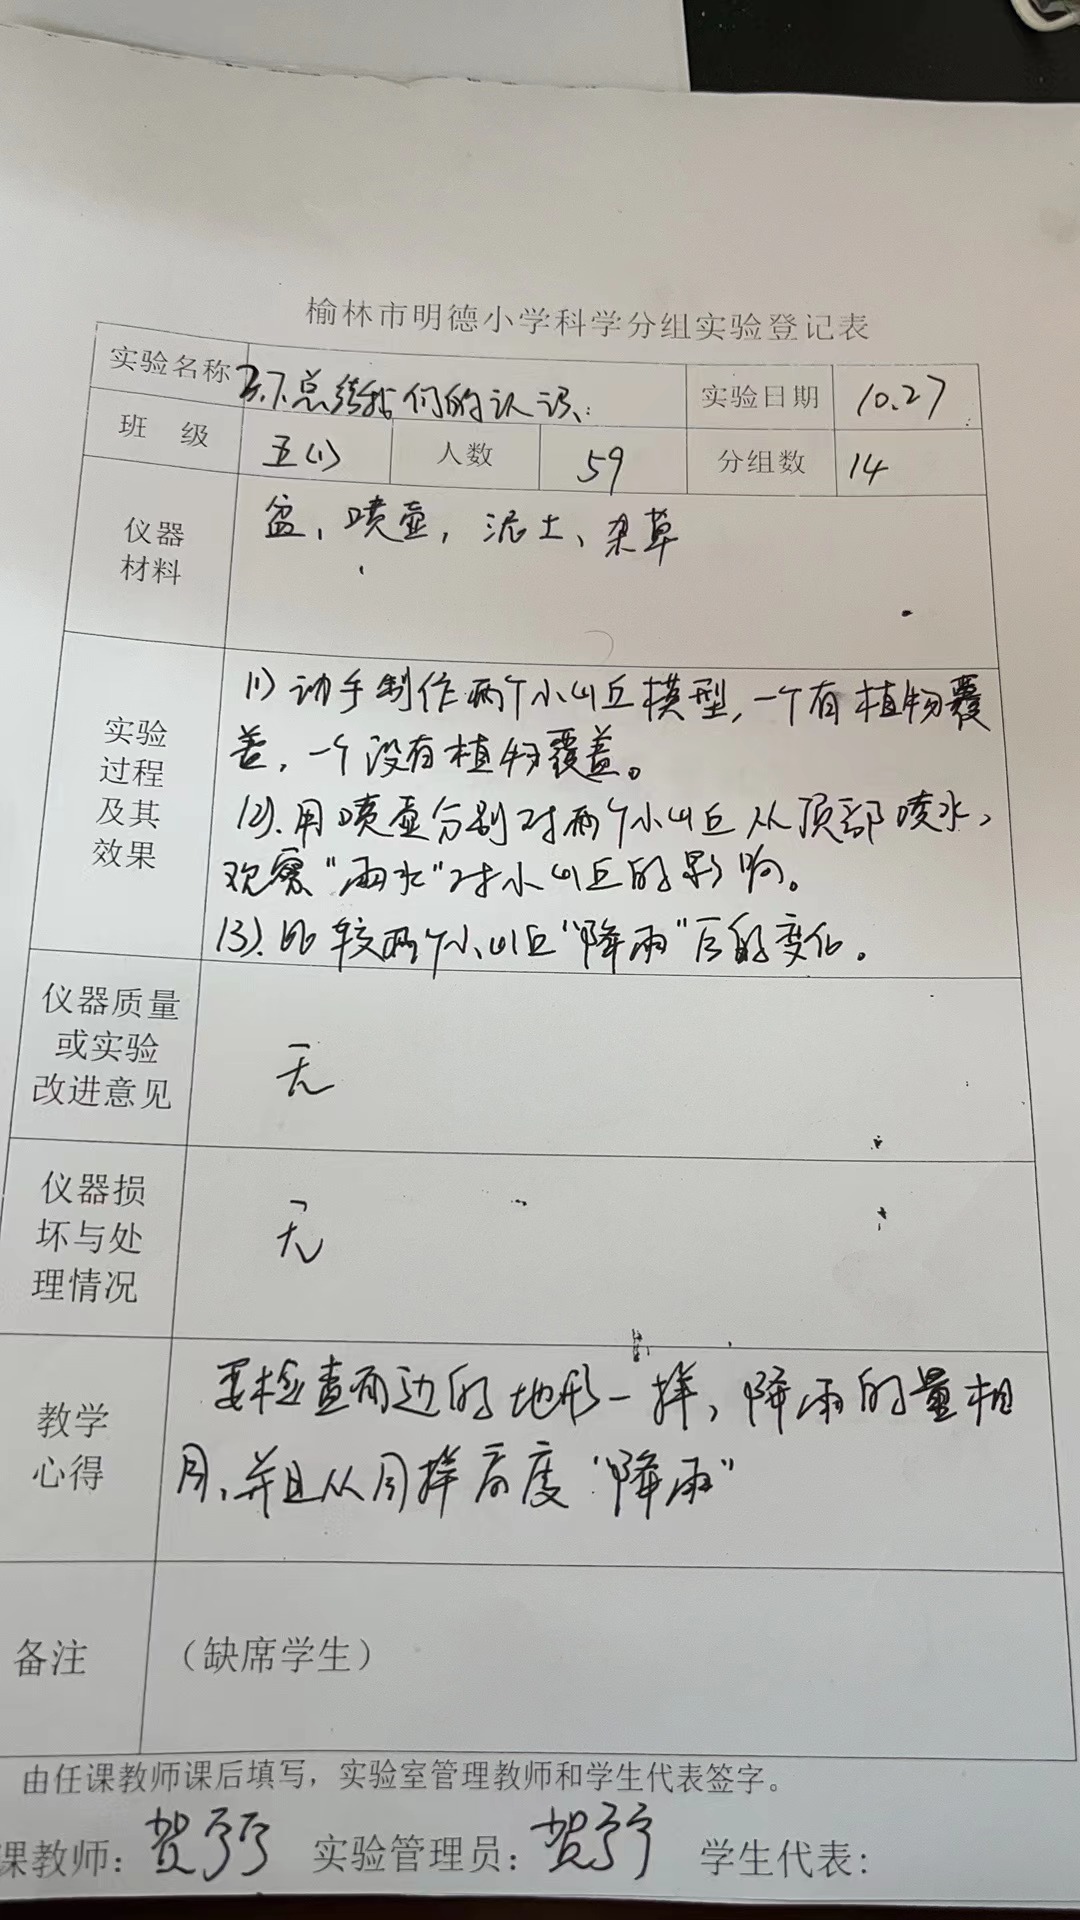 榆林市明德小学科学分组实验登记表
实验名称 2.7.总结我们的认识 实验日期 10.27
班 级 五(1) 人数 59 分组数 14
仪器
材料
盆、喷壶，泥土、杂草
实验
过程
及其
效果
(1) 动手制作两个小山丘模型，一个有植物覆
盖，一个没有植物覆盖。
(2).用喷壶分别对两个小山丘从顶部喷水，
观察“雨水”对小山丘的影响。
(3).比较两个小山丘“降雨”后的变化。
仪器质量
或实验
改进意见
无
仪器损
坏与处
理情况
无
教学
心得
要检查两边的地形一样，降雨的量相
同，并且从同样高度“降雨”
备注 （缺席学生）
由任课教师课后填写，实验室管理教师和学生代表签字。
课教师：贺 实验管理员：贺 学生代表：